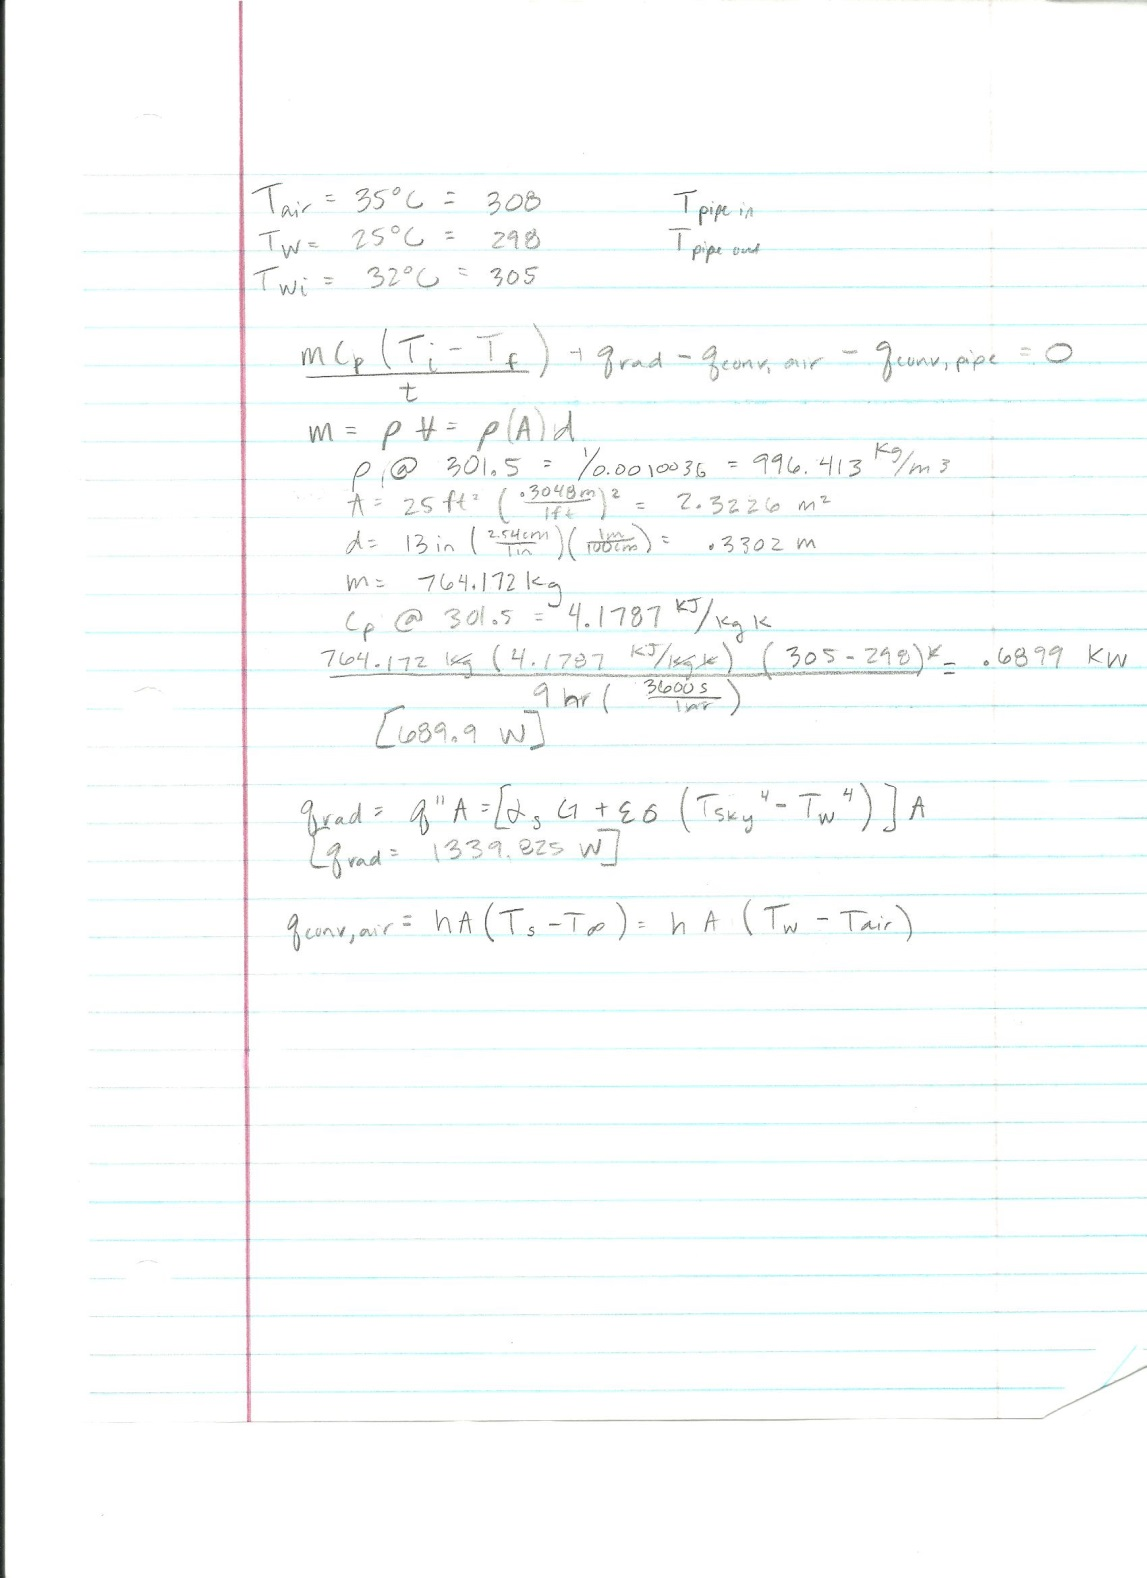 T air = 35°C = 308 T pipe in
T W = 25°C = 298 T pipe out
T Wi = 32°C = 305
m Cp (Ti - Tf) / t + q rad - q conv, air - q conv, pipe = 0
m = ρ V = ρ(A)d
ρ @ 301.5 = 1/0.0010036 = 996.413 Kg/m3
A = 25 ft² (.3048m / 1ft)² = 2.3226 m²
d = 13 in (2.54cm / 1in)(1m / 100cm) = .3302 m
m = 764.172 kg
Cp @ 301.5 = 4.1787 KJ/kg K
764.172 kg (4.1787 KJ/kg K) (305-298)K / 9 hr (3600s / 1hr) = .6899 KW
[689.9 W]
q rad = q"A = [αs G + εσ (Tsky⁴ - Tw⁴)] A
[q rad = 1339.825 W]
q conv, air = hA(Ts - T∞) = h A (Tw - Tair)